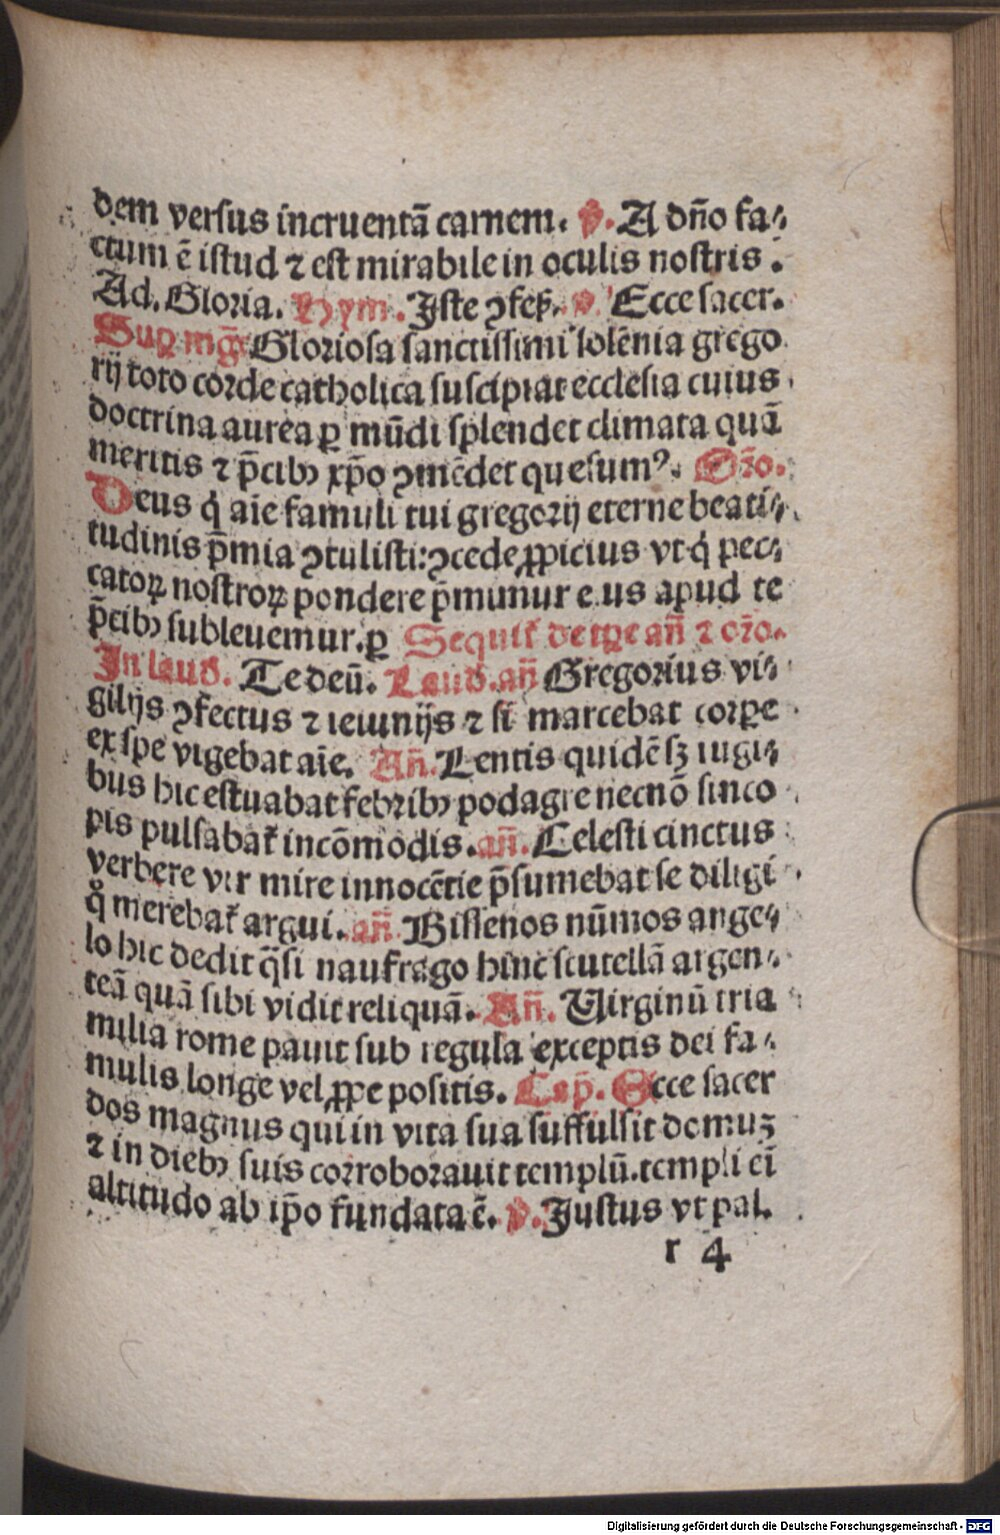 dem versus incruentā carnem. ꝟ. A dn̄o fa⸗
ctum ē istud ⁊ est mirabile in oculis nostris.
Ad. Gloria. Hym. Iste ꝯfeſſ. ꝟ. Ecce sacer.
Suꝑ mg̅ Gloriosa sanctissimi solēnia grego
rij toto corde catholica suscipiat ecclesia cuius
doctrina aurea ꝑ mūdi splendet climata quā
meritis ⁊ p̄cibꝫ xp̄o ꝯmēdet quesumꝰ. Oꝛ̄o.
Deus q̇ aīe famuli tui gregorij eterne beati⸗
tudinis p̄mia ꝯtulisti: ꝯcede ꝓpicius vt q̇ pec⸗
catoꝝ nostroꝝ pondere p̄mimur eius apud te
p̄cibꝫ subleuemur. ꝑ Sequit̄ de tꝑe an̄ ⁊ oꝛ̄o.
In laud. Te deū. Laud. an̄ Gregorius vi⸗
gilijs ꝯfectus ⁊ ieiunijs ⁊ si marcebat corꝑe
ex spe vigebat aīe. An̄. Lentis quidē sꝫ iugi⸗
bus hic estuabat febribꝫ podagre necnō sinco
pis pulsabat̄ incōmodis. an̄. Celesti cinctus
verbere vir mire innocētie p̄sumebat se diligi
q̊ merebat̄ argui. an̄. Bissenos nūmos ange⸗
lo hic dedit q̄si naufrago hinc scutellā argen⸗
teā quā sibi vidit reliquā. An̄. Virginū tria
milia rome pauit sub regula exceptis dei fa⸗
mulis longe vel ꝓpe positis. Cap̄. Ecce sacer
dos magnus qui in vita sua suffulsit domuꝫ
⁊ in diebꝫ suis corroborauit templū. templi eī
altitudo ab ip̄o fundata ē. ꝟ. Iustus vt pal.
r 4
Digitalisierung gefördert durch die Deutsche Forschungsgemeinschaft - DFG